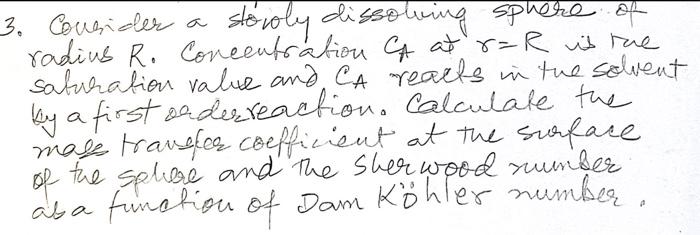 3. Consider a slowly dissolving sphere of
radius R. Concentration CA at r=R is the
saturation value and CA reacts in the solvent
by a first order reaction. Calculate the
mass transfer coefficient at the surface
of the sphere and the Sherwood number
as a function of Dam Köhler number.